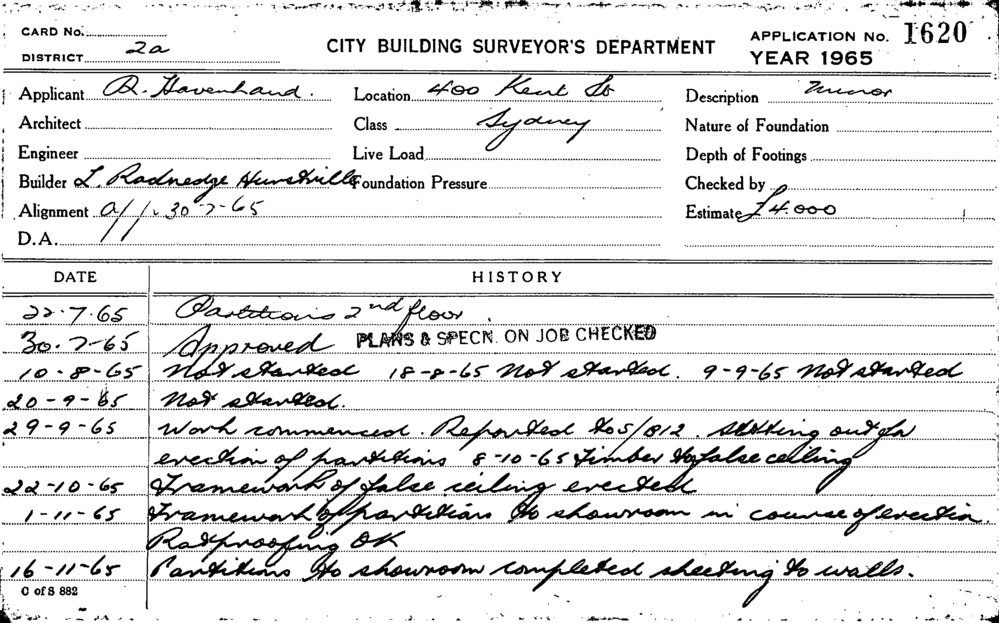 CARD No.
DISTRICT 2a
CITY BUILDING SURVEYOR'S DEPARTMENT
APPLICATION No. 1620
YEAR 1965
Applicant R. Havenhand.
Location 400 Kent St
Description Minor
Architect
Class Sydney
Nature of Foundation
Engineer
Live Load
Depth of Footings
Builder L. Radnedge Hurstville
Foundation Pressure
Checked by
Alignment a/1. 30-7-65
Estimate £4.000
D.A.
DATE HISTORY
22.7.65 Partitions 2nd floor.
30.7-65 Approved PLANS & SPECN. ON JOB CHECKED
10-8-65 Not started 18-8-65 Not started. 9-9-65 Not started
20-9-65 Not started.
29-9-65 Work commenced. Reported to S/812. Setting out for
erection of partitions 8-10-65 Timber to false ceiling
22-10-65 Framework of false ceiling erected
1-11-65 Framework of partitions to showroom in course of erection.
Ratproofing OK
16-11-65 Partitions to showroom completed sheeting to walls.
C of S 882